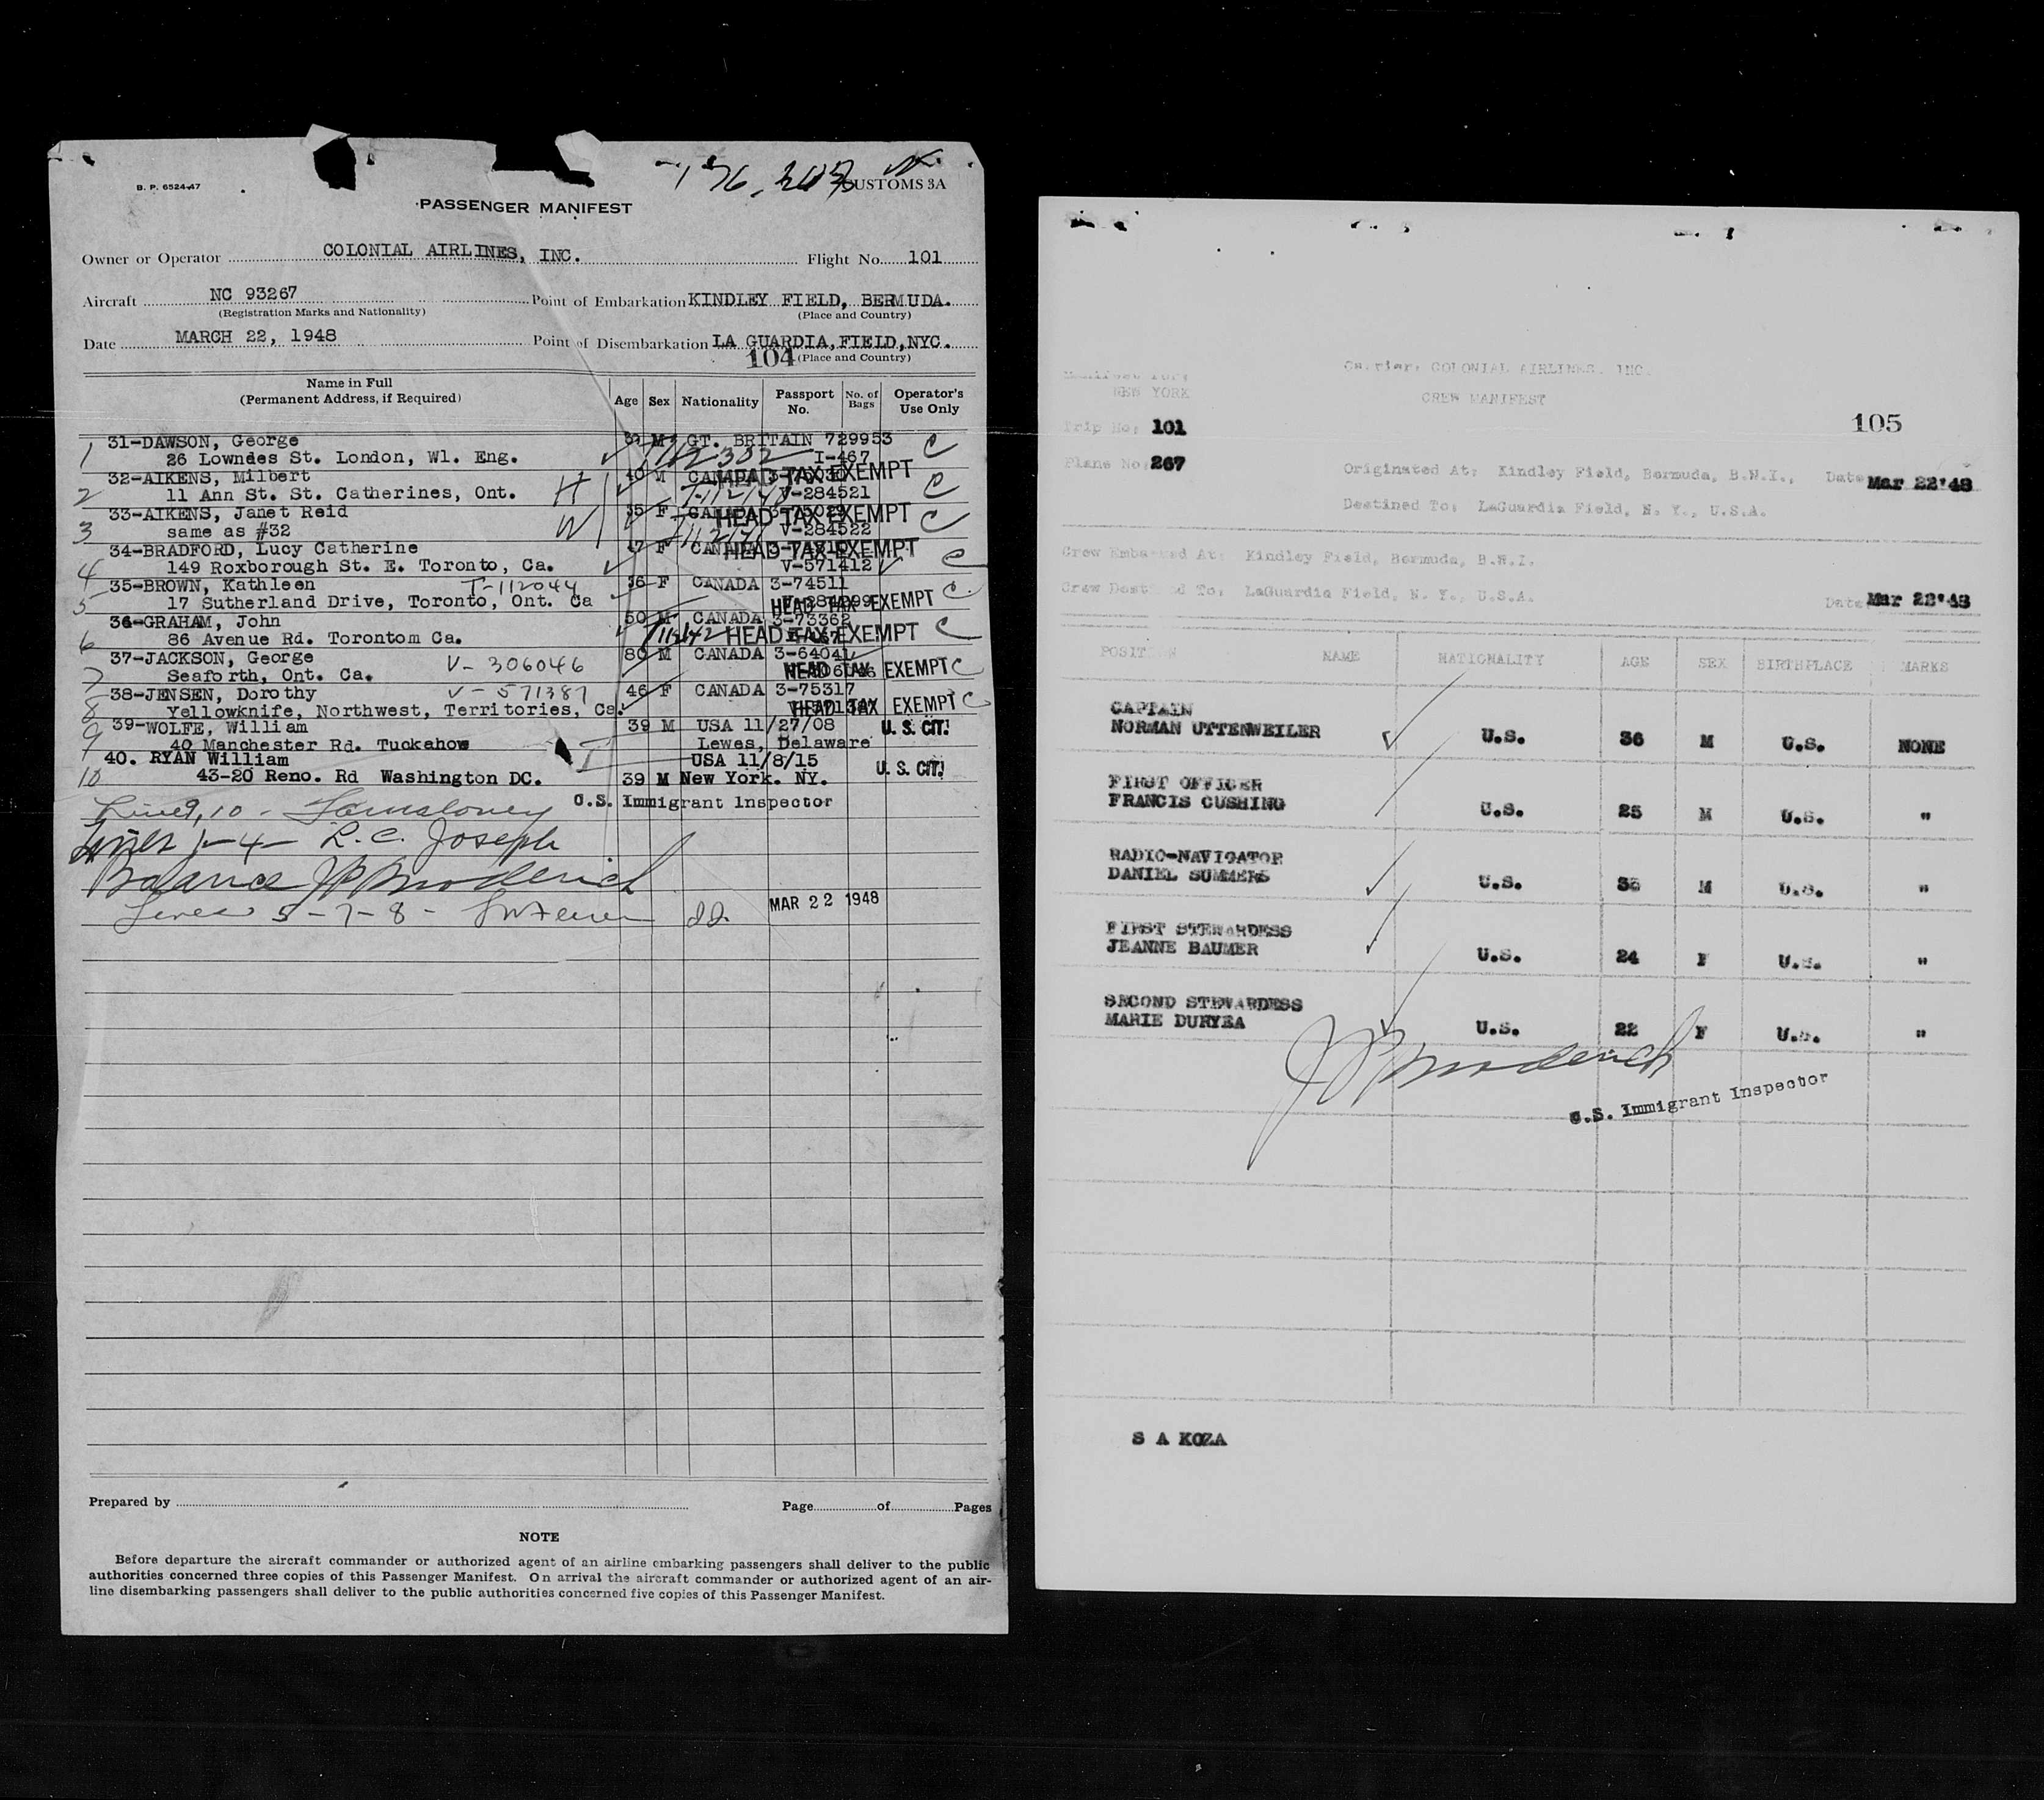 B. P. 6524-47
CUSTOMS 3A
PASSENGER MANIFEST
Owner or Operator COLONIAL AIRLINES, INC. Flight No. 101
Aircraft NC 93267 Point of Embarkation KINDLEY FIELD, BERMUDA.
(Registration Marks and Nationality) (Place and Country)
Date MARCH 22, 1948 Point of Disembarkation LA GUARDIA, FIELD, NYC.
104 (Place and Country)
Name in Full
(Permanent Address, if Required)
Age Sex Nationality Passport No. No. of Bags Operator's Use Only
1 31-DAWSON, George M GT. BRITAIN 729953 C
26 Lowndes St. London, W1. Eng. I-467
2 32-AIKENS, Milbert 40 M CANADA HEAD TAX EXEMPT C
11 Ann St. St. Catherines, Ont. H V-284521
3 33-AIKENS, Janet Reid 35 F CANADA HEAD TAX EXEMPT C
same as #32 W V-284522
4 34-BRADFORD, Lucy Catherine F CANADA HEAD TAX EXEMPT C
149 Roxborough St. E. Toronto, Ca. V-571412
5 35-BROWN, Kathleen T-112044 36 F CANADA 3-74511 C
17 Sutherland Drive, Toronto, Ont. Ca HEAD TAX EXEMPT
6 36-GRAHAM, John 50 M CANADA 3-73362 C
86 Avenue Rd. Torontom Ca. HEAD TAX EXEMPT
7 37-JACKSON, George 80 M CANADA 3-64041
Seaforth, Ont. Ca. V-306046 HEAD TAX EXEMPT C
8 38-JENSEN, Dorothy V-571387 46 F CANADA 3-75317
Yellowknife, Northwest, Territories, Ca. HEAD TAX EXEMPT C
9 39-WOLFE, William 39 M USA 11/27/08 U. S. CIT!
40 Manchester Rd. Tuckahow Lewes, Delaware
10 40. RYAN William USA 11/8/15 U. S. CIT!
43-20 Reno. Rd Washington DC. 39 M New York. NY.
U.S. Immigrant Inspector
Lines 1-4- R.C. Joseph
Balance JP Broderick
Lines 5-7-8-
MAR 22 1948
Prepared by Page of Pages
NOTE
Before departure the aircraft commander or authorized agent of an airline embarking passengers shall deliver to the public
authorities concerned three copies of this Passenger Manifest. On arrival the aircraft commander or authorized agent of an air-
line disembarking passengers shall deliver to the public authorities concerned five copies of this Passenger Manifest.
Carrier, COLONIAL AIRLINES, INC.
NEW YORK
CREW MANIFEST
105
Trip No: 101
Plane No: 267
Originated At: Kindley Field, Bermuda, B.W.I., Date Mar 22'48
Destined To: LaGuardia Field, N. Y., U.S.A.
Crew Embarked At: Kindley Field, Bermuda, B.W.I.
Crew Destined To: LaGuardia Field, N. Y., U.S.A. Date Mar 22'48
POSITION NAME NATIONALITY AGE SEX BIRTHPLACE MARKS
CAPTAIN
NORMAN UTTENWEILER U.S. 36 M U.S. NONE
FIRST OFFICER
FRANCIS CUSHING U.S. 25 M U.S. "
RADIO-NAVIGATOR
DANIEL SUMMERS U.S. M U.S. "
FIRST STEWARDESS
JEANNE BAUMER U.S. 24 F U.S. "
SECOND STEWARDESS
MARIE DURYEA U.S. 22 F U.S. "
JP Broderick
U.S. Immigrant Inspector
S A KOZA